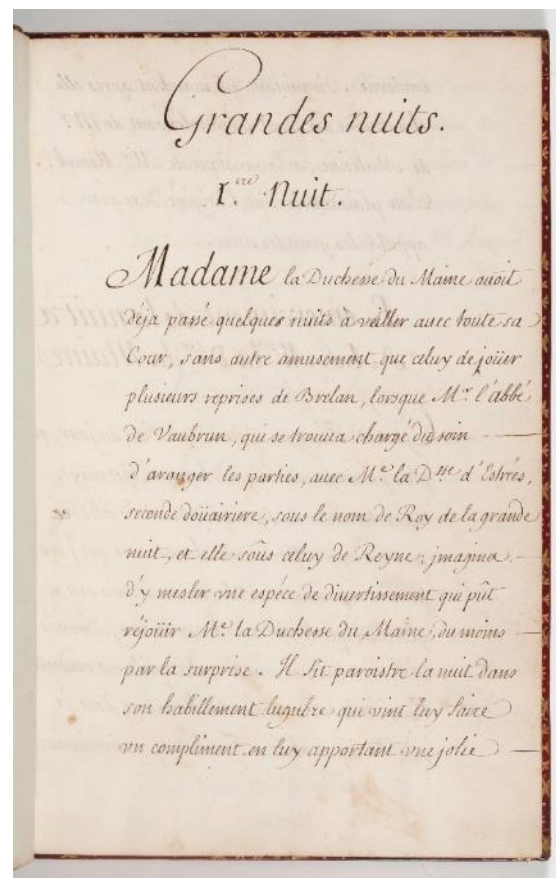 Grandes nuits.
I.re Nuit.
Madame la Duchesse du Maine auoit
deja passé quelques nuits a veiller auec toute sa
Cour, sans autre amusement que celuy de joüer
plusieurs reprises de Brelan, lorsque Mr. l'abbé
de Vaubrun, qui se trouua chargé du soin
d'aranger les parties, auec Me. la D.sse d'Estrées,
seconde doüairiere, sous le nom de Roy de la grande
nuit, et elle soûs celuy de Reyne; jmagina
d'y mesler vne espéce de divertissement qui pût
réjoüir Me. la Duchesse du Maine, du moins
par la surprise. Il fit paroistre la nuit dans
son habillement lugubre qui vint luy faire
vn compliment en luy apportant vne jolie